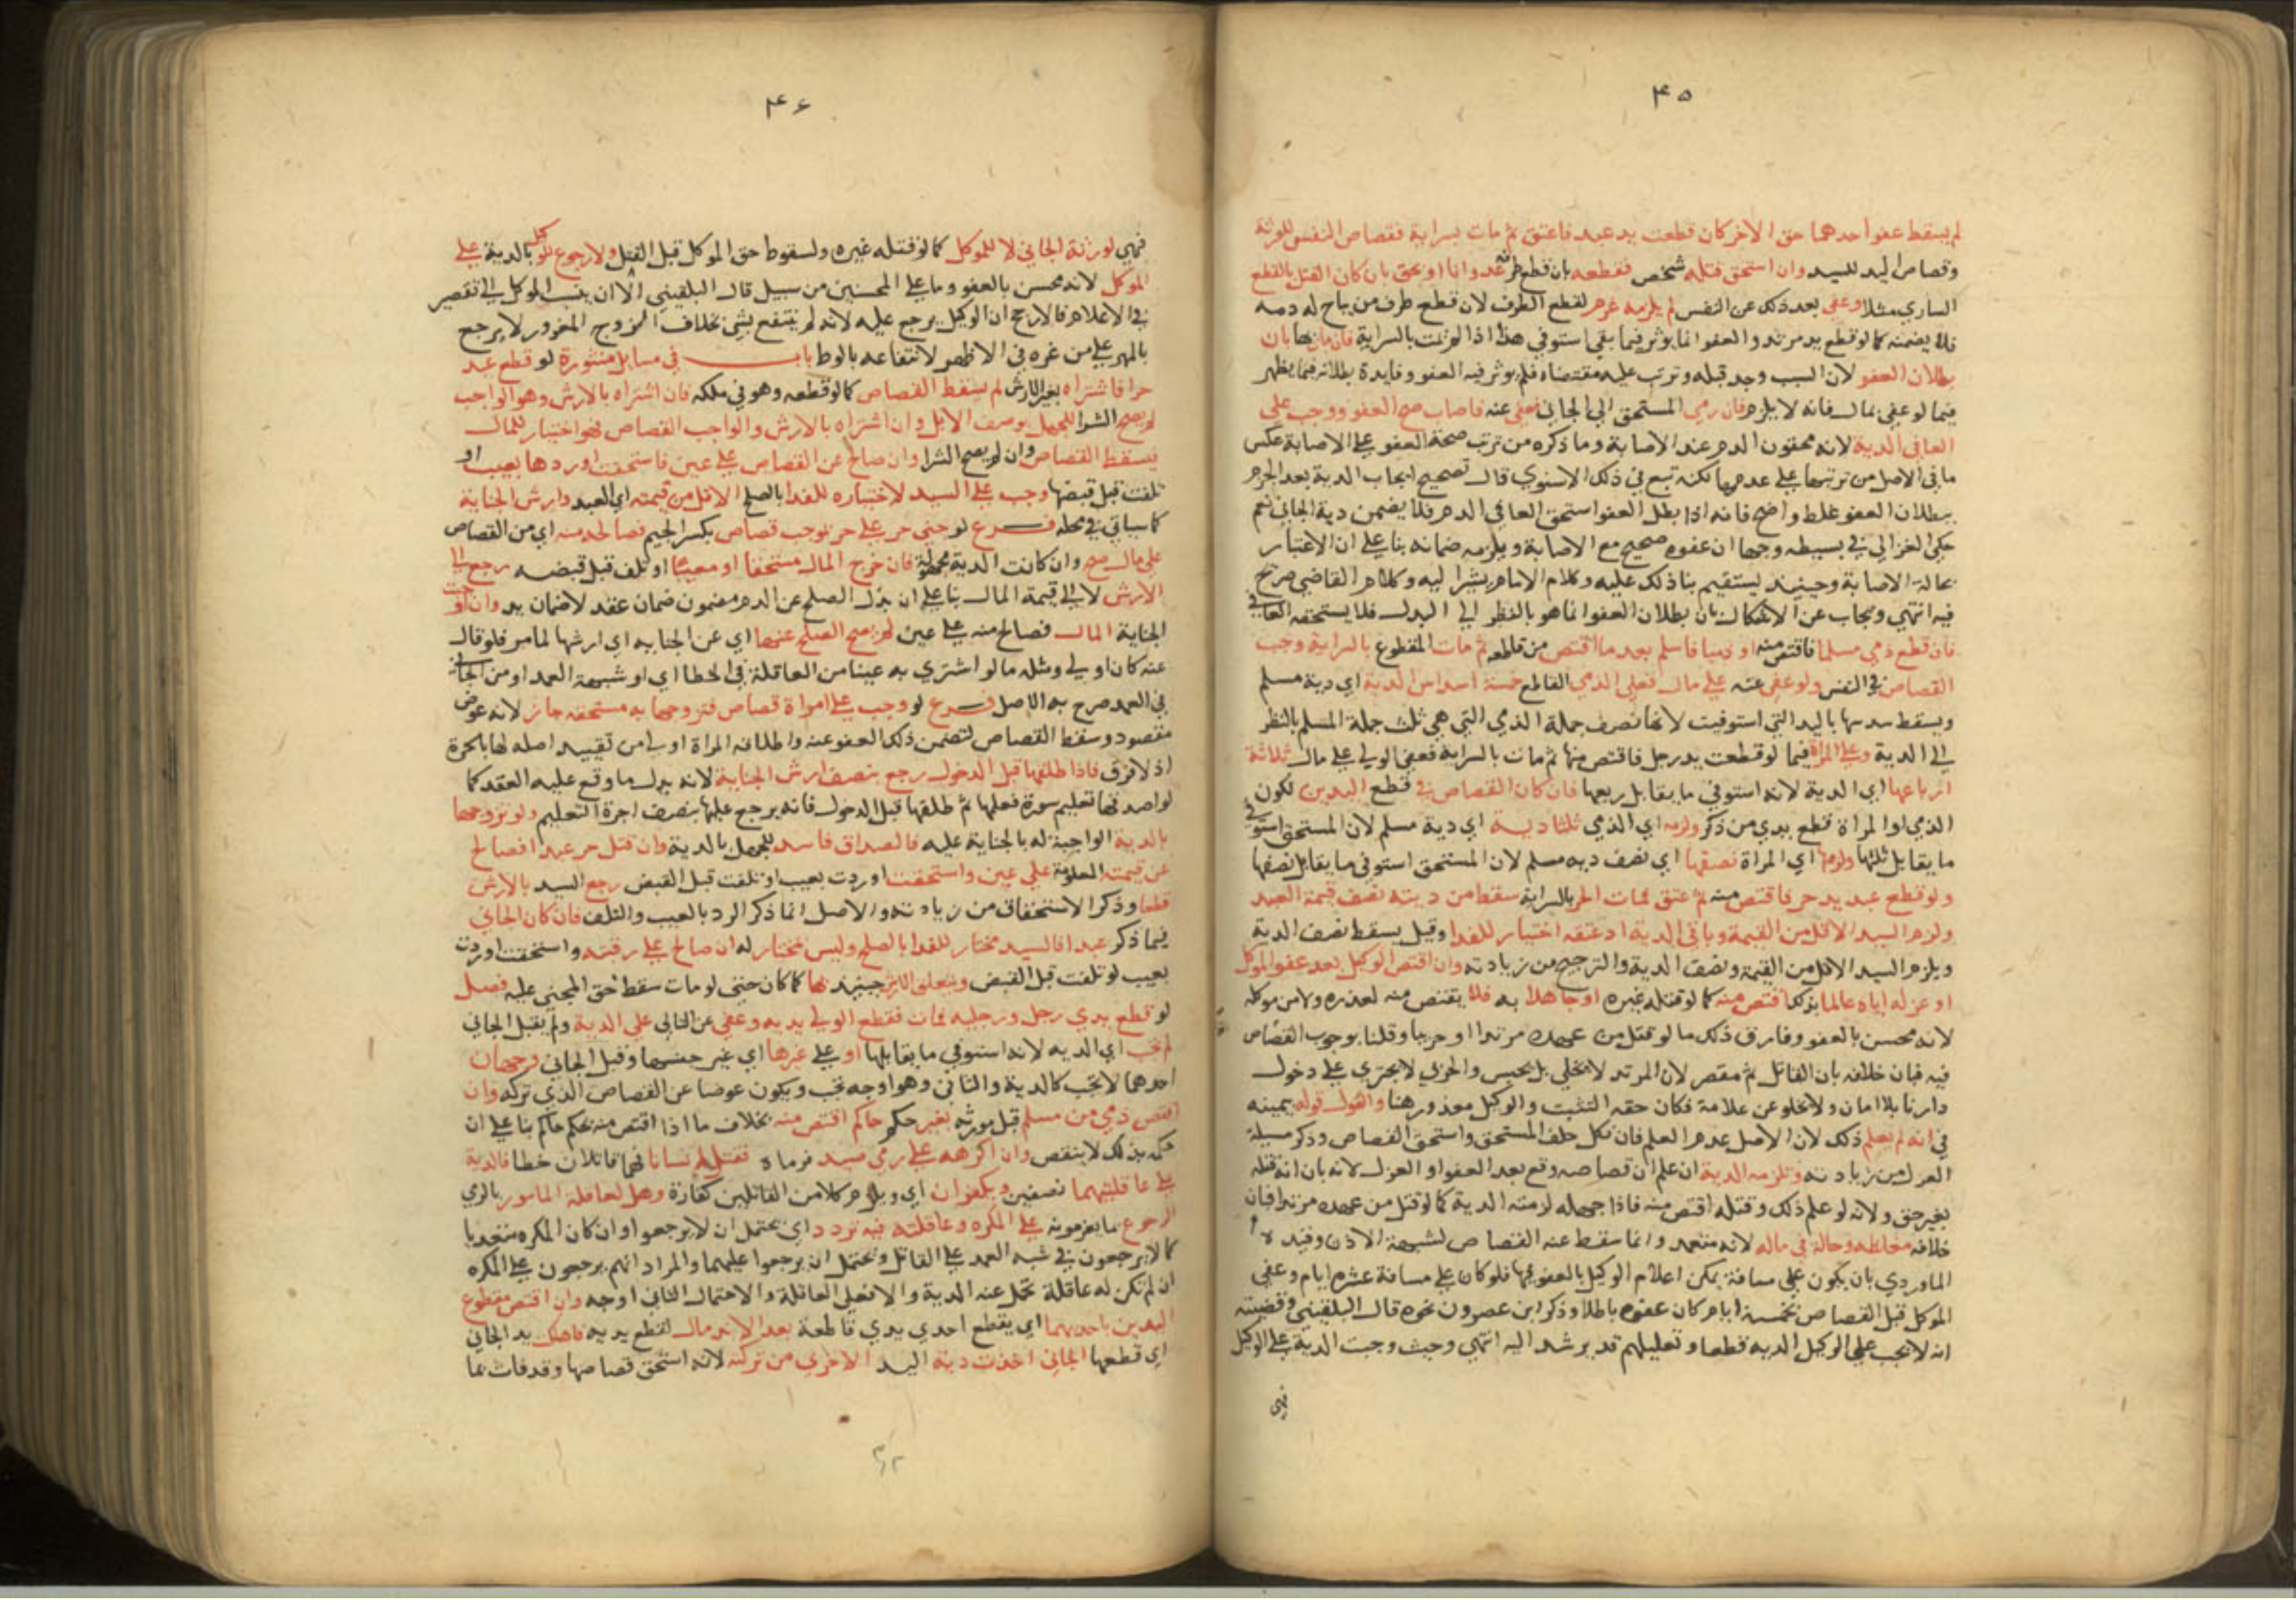 ٤٥
لم يسقط عفو احدهما حق الاخر كان قطعت يد عبد فاعتق ثم مات بسراية فقصاص النفس للورثة
وقصاص اليد للسيد وان استحق قتله شخص فقطعه بان قطع طرفه عدوانا او بحق بان كان القتل بالقطع
الساري مثلا وعفى بعد ذلك عن النفس لم يلزمه غرم لقطع الطرف لان قطع طرف من يباح له دمه
فلا يضمنه كما لو قطع يد مرتد والعفو انما يوثر فيما بقى استوفي هذا اذا لم تمت بالسراية فان مات بها بان
بطلان العفو لان السبب وجد قبله وترتب عليه مقتضاه فلم يوثر فيه العفو وفايدة بطلانه فيما يظهر
فيما لو عفى بمال فانه لا يلزم فان رمى المستحق الى الجاني فعفى عنه فاصاب صح العفو ووجب على
العافي الدية لانه محقون الدم عند الاصابة وما ذكره من ترتب صحة العفو على الاصابة عكس
ما في الاصل من ترتبها على عدمها لكنه تبع في ذلك الاسنوي قال تصحيح ايجاب الدية بعد الجزم
ببطلان العفو غلط واضح فانه اذا بطل العفو استحق العافي الدم فلا يضمن دية الجاني نعم
حكى الغزالي في بسيطه وجها ان عفوه صحيح مع الاصابة ويلزمه ضمانه بنا على ان الاعتبار
بحالة الاصابة وحينيذ يستقيم بنا ذلك عليه وكلام الامام يشير اليه وكلام القاضي صريح
فيه انتهي ويجاب عن الاشكال بان بطلان العفو انما هو بالنظر الى البدل فلا يستحقه العافي
فان قطع ذمي مسلما فاقتص منه او ذميا فاسلم بعد ما اقتص من قاطعه ثم مات المقطوع بالسراية وجب
القصاص في النفس ولو عفى عنه على مال فعلى الذمي القاطع خمسة اسداس الدية اي دية مسلم
ويسقط سدسها باليد التي استوفيت لانها نصف جملة الذمي التي هي ثلث جملة المسلم بالنظر
الى الدية وعلى المراة فيما لو قطعت يد رجل فاقتص منها ثم مات بالسراية فعفى الولي على مال ثلاثة
ارباعها اي الدية لانه استوفي ما يقابل ربعها فان كان القصاص في قطع اليدين لكون
الذمي او المراة قطع يدي من ذكر ولزمه اي الذمي ثلثا دية اي دية مسلم لان المستحق استوفي
ما يقابل ثلثها ولزمها اي المراة نصفها اي نصف دية مسلم لان المستحق استوفي ما يقابل نصفها
ولو قطع عبد يد حر فاقتص منه ثم عتق فمات الحر بالسراية سقط من ديته نصف قيمة العبد
ولزم السيد الاقل من القيمة وباقي الدية اذ عتقه اختيار للفدا وقيل يسقط نصف الدية
ويلزم السيد الاقل من القيمة ونصف الدية والترجيح من زيادته وان اقتص الوكيل بعد عفو الموكل
او عزله اياه عالما بذلك اقتص منه كما لو قتله غيره او جاهلا به فلا يقتص منه لعذره ولا من موكله
لانه محسن بالعفو وفارق ذلك ما لو قتل من عهده مرتدا او حربيا وقلنا بوجوب القصاص
فيه فبان خلافه بان القاتل ثم مقصر لان المرتد لا يخلي بل يحبس والحربي لا يجتري على دخول
دارنا بلا امان ولا يخلو عن علامة فكان حقه التثبت والوكيل معذور هنا والقول قوله بيمينه
في انه لم يعلم ذلك لان الاصل عدم العلم فان نكل حلف المستحق واستحق القصاص وذكر مسيلة
العزل من زيادته وتلزمه الدية ان علم ان قصاصه وقع بعد العفو او العزل لانه بان انه قتله
بغير حق ولانه لو علم ذلك وقتله اقتص منه فاذا جهله لزمته الدية كما لو قتل من عهده مرتدا فبان
خلافه مغلظة وحالة في ماله لانه متعمد وانما سقط عنه القصاص لشبهة الاذن وقيد
الماوردي بان يكون على مسافة يمكن اعلام الوكيل بالعفو فيها فلو كان على مسافة عشرة ايام وعفى
الموكل قبل القصاص بخمسة ايام كان عفوه باطلا وذكر ابن عصرون نحوه قال البلقيني وقضيته
انه لا تجب على الوكيل الدية قطعا وتعليلهم قد يرشد اليه انتهي وحيث وجبت الدية على الوكيل
فهي
٤٦
فهي لورثة الجاني لا للموكل كما لو قتله غيره ولسقوط حق الموكل قبل القتل ولا رجوع للوكيل بالدية على
الموكل لانه محسن بالعفو وما على المحسنين من سبيل قال البلقيني الا ان ينسب الموكل الى تقصير
في الاعلام فالارجح ان الوكيل يرجع عليه لانه لم ينتفع بشي بخلاف الزوج المغرور لا يرجع
بالمهر على من غره في الاظهر لانتفاعه بالوط باب في مسايل منثورة لو قطع عبد
حرا فاشتراه بغير الارش لم يسقط القصاص كما لو قطعه وهو في ملكه فان اشتراه بالارش وهو الواجب
لم يصح الشرا للجهل بوصف الابل وان اشتراه بالارش والواجب القصاص فهو اختيار للمال
فيسقط القصاص وان لم يصح الشرا وان صالح عن القصاص على عين فاستحقت او ردها بعيب او
تلفت قبل قبضها وجب على السيد لاختياره للفدا بالصلح الاقل من قيمته اي العبد وارش الجناية
كما سياتي في محله فرع لو جنى حر على حر بموجب قصاص بكسر الجيم فصالحه منه اي من القصاص
على مال صح وان كانت الدية مجهولة فان خرج المال مستحقا او معيبا او تلف قبل قبضه رجع الى
الارش لا الى قيمة المال بنا على ان بدل الصلح عن الدم مضمون ضمان عقد لا ضمان يد وان اوجبت
الجناية المال فصالح منه على عين لم يصح الصلح عنها اي عن الجناية اي ارشها لما مر فلو قال
عنه كان اولى ومثله ما لو اشترى به عينا من العاقلة في الخطا اي او شبهة العمد او من الجاني
في العمد صرح به الاصل فرع لو وجب على امراة قصاص فتزوجها به مستحقه جاز لانه عوض
مقصود وسقط القصاص لتضمن ذلك العفو عنه واطلاقه المراة اولى من تقييد اصله لها بالحرة
اذ لا فرق فاذا طلقها قبل الدخول رجع بنصف ارش الجناية لانه بدل ما وقع عليه العقد كما
لو اصدقها تعليم سورة فعلمها ثم طلقها قبل الدخول فانه يرجع عليها بنصف اجرة التعليم ولو تزوجها
بالدية الواجبة له بالجناية عليه فالصداق فاسد للجهل بالدية وان قتل حر عبدا فصالح
عن قيمته المعلومة على عين واستحقت او ردت بعيب او تلفت قبل القبض رجع السيد بالارش
قطعا وذكر الاستحقاق من زيادته والاصل انما ذكر الرد بالعيب والتلف فان كان الجاني
فيما ذكر عبدا فالسيد مختار للفدا بالصلح وليس مختار له ان صالح على رقبته واستحقت او ردت
بعيب لو تلفت قبل القبض ويتعلق الارش حينيذ بها كما كان حتى لو مات سقط حق المجني عليه فصل
لو قطع يدي رجل ورجليه فمات فقطع الولي يديه وعفى عن الباقي على الدية ولم يقبل الجاني
لم تجب اي الدية لانه استوفي ما يقابلها او على غيرها اي غير جنسها وقبل الجاني فوجهان
احدهما لا تجب كالدية والثاني وهو اوجه تجب ويكون عوضا عن القصاص الذي تركه وان
اقتص ذمي من مسلم قبل مورثه بغير حكم حاكم اقتص منه بخلاف ما اذا اقتص منه بحكم حاكم بنا على ان
حكمه بذلك لا ينقض وان اكرهه على رمي صيد فرماه فقتل انسانا فهما قاتلان خطا فالدية
على عاقلتهما نصفين ويكفران اي ويلزم كلا من القاتلين كفارة وهل لعاقلة المامور بالرمي
الرجوع بما يغرمونه على المكره وعاقلته فيه تردد اي يحتمل ان لا يرجعوا وان كان المكره متعديا
كما لا يرجعون في شبه العمد على القاتل ويحتمل ان يرجعوا عليهما والمراد انهم يرجعون على المكره
ان لم تكن له عاقلة تحمل عنه الدية والا فعلى العاقلة والاحتمال الثاني اوجه وان اقتص مقطوع
اليدين باحديهما اي بقطع احدي يدي قاطعه بعد الاندمال لقطع يديه فاهلك يد الجاني
اي قطعها الجاني اخذت دية اليد الاخرى من تركته لانه استحق قصاصها وقد فات بما